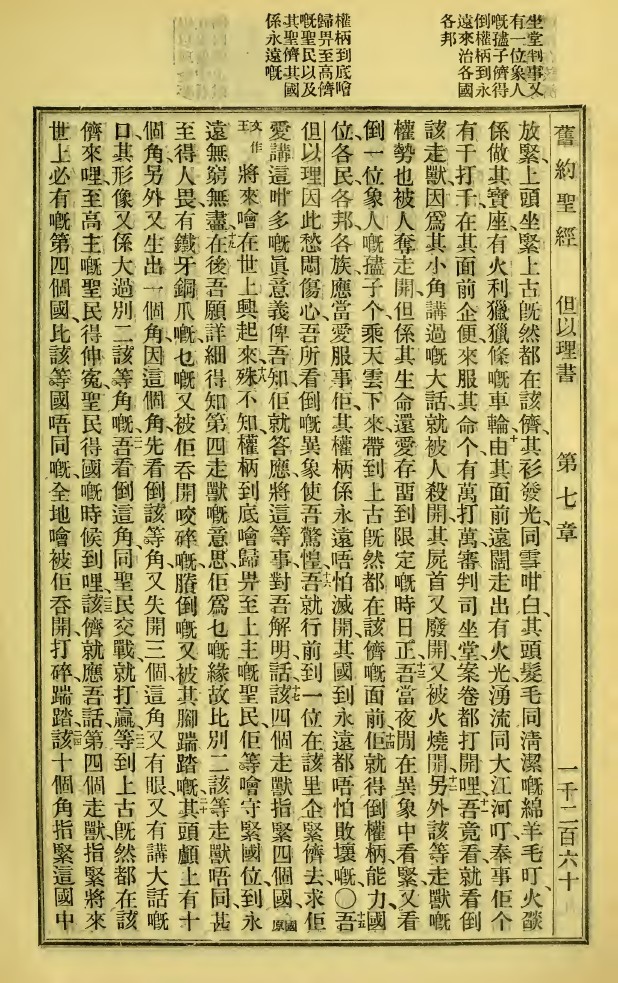 坐堂判事又
有一位象人
嘅孻子儕得
倒權柄到永
遠來治各國
各邦
權柄到底噲
歸畀至高儕
嘅聖民以及
其聖儕其國
係永遠嘅
舊約聖經 但以理書 第七章 一千二百六十
放緊、上頭坐緊上古旣然都在該儕其衫發光同雪咁白、其頭髮毛同淸潔嘅綿羊毛叮火燄
係做其寶座、有火利獵獵條嘅車輪、十由其面前遠闊走出有火光湧流同大江河叮、奉事佢个
有千打千、在其面前企便來服其命个有萬打萬、審判司坐堂案卷都打開哩、十一吾竟看就看倒
該走獸因爲其小角講過嘅大話就被人殺開其屍首又廢開又被火燒開、十二另外該等走獸嘅
權勢也被人奪走開但係其生命還愛存畱到限定嘅時日正、十三吾當夜間在異象中看緊又看
倒一位象人嘅孻子个乘天雲下來、帶到上古旣然都在該儕嘅面前、十四佢就得倒權柄、能力、國
位、各民、各邦、各族、應當愛服事佢其權柄係永遠唔怕滅開其國到永遠都唔怕敗壞嘅、〇十五吾
但以理因此愁悶傷心、吾所看倒嘅異象使吾驚惶、十六吾就行前到一位在該里企緊儕去求佢
愛講這咁多嘅眞意義俾吾知、佢就答應將這等事對吾解明話、十七該四個走獸指緊四個國、國原
文作王將來噲在世上興起來、十八殊不知權柄到底噲歸畀至上主嘅聖民、佢等噲守緊國位、到永
遠無窮無盡、十九在後吾願詳細得知第四走獸嘅意思、佢爲乜嘅緣故比別二該等走獸唔同、甚
至得人畏有鐵牙銅爪嘅乜嘅又被佢吞開咬碎嘅賸倒嘅又被其腳踹踏嘅、二十其頭顱上有十
個角、另外又生出一個角、因這個角、先看倒該等角又失開三個這角又有眼又有講大話嘅
口、其形像又係大過別二該等角嘅、吾看倒這角、同聖民交戰就打贏、等到上古旣然都在該
儕來哩、至高主嘅聖民得伸寃、聖民得國嘅時候到哩、該儕就應吾話、第四個走獸指緊將來
世上必有嘅第四個國、比該等國唔同嘅、全地噲被佢吞開、打碎、踹踏、該十個角指緊這國中